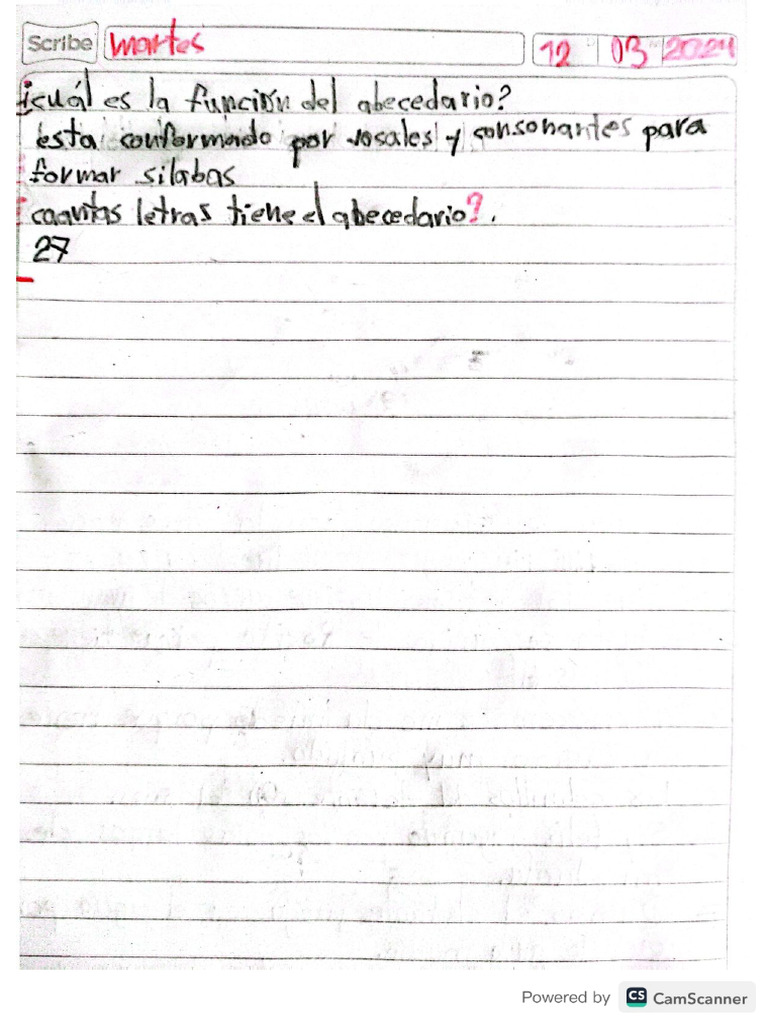 Scribe martes 12 03 2024
¿cuál es la función del abecedario?
esta conformado por vosales y consonantes para
formar silabas
cuantas letras tiene el abecedario?.
27
Powered by CS CamScanner